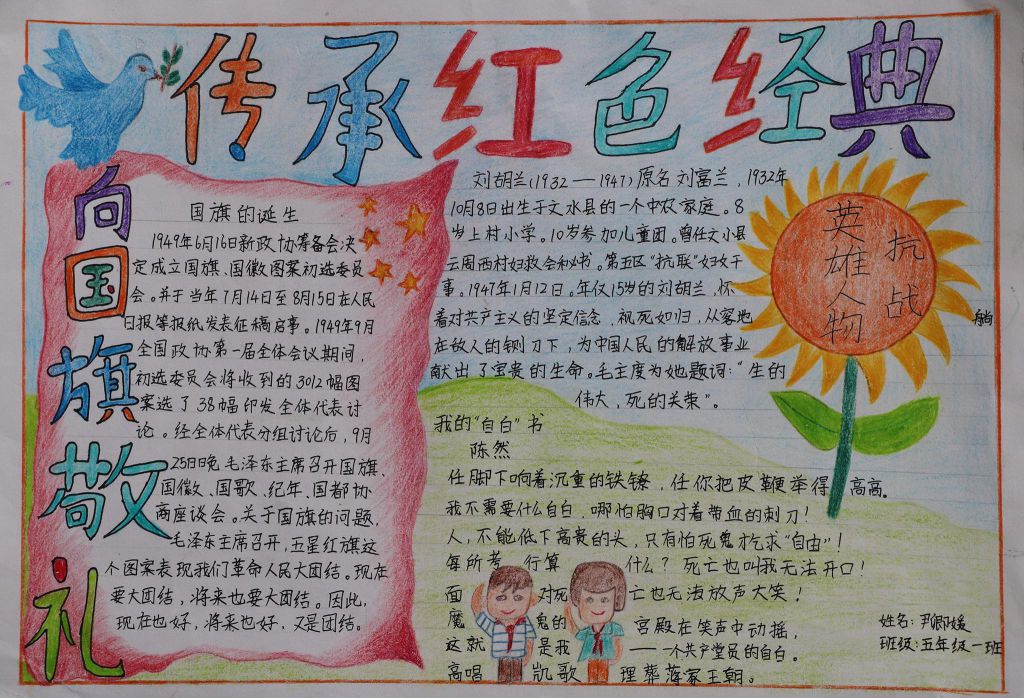 传承红色经典
向国旗敬礼
国旗的诞生
1949年6月16日新政协筹备会决
定成立国旗、国徽图案初选委员
会。并于当年7月14日至8月15日在人民
日报等报纸发表征稿启事。1949年9月
全国政协第一届全体会议期间,
初选委员会将收到的3012幅图
案选了38幅印发全体代表讨
论。经全体代表分组讨论后,9月
25日晚毛泽东主席召开国旗、
国徽、国歌、纪年、国都协
商座谈会。关于国旗的问题,
毛泽东主席召开,五星红旗这
个图案表现我们革命人民大团结。现在
要大团结,将来也要大团结。因此,
现在也好,将来也好,又是团结。
刘胡兰(1932—1947)原名刘富兰,1932年
10月8日出生于文水县的一个中农家庭。8
岁上村小学。10岁参加儿童团。曾任文水县
云周西村妇救会秘书。第五区"抗联"妇女干
事。1947年1月12日。年仅15岁的刘胡兰,怀
着对共产主义的坚定信念,视死如归,从容地
在敌人的铡刀下,为中国人民的解放事业
献出了宝贵的生命。毛主度为她题词:"生的
伟大,死的关荣"。
抗战
英雄人物
我的"自白"书
陈然
任脚下响着沉重的铁镣,任你把皮鞭举得高高。
我不需要什么自白,哪怕胸口对着带血的刺刀!
人,不能低下高贵的头,只有怕死鬼才乞求"自由"!
每所考 行算 什么?死亡也叫我无法开口!
面 对死 亡也无法放声大笑!
魔 鬼的 宫殿在笑声中动摇,
这就 是我 ——一个共产党员的自白。
高唱 凯歌 理葬蒋家王朝。
姓名:尹卿媛
班级:五年级一班